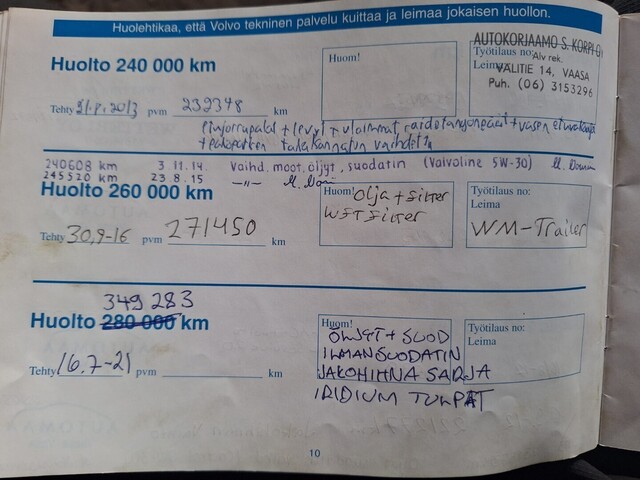 Huolehtikaa, että Volvo tekninen palvelu kuittaa ja leimaa jokaisen huollon.
Huolto 240 000 km
Huom!
Työtilaus no:
Leima
AUTOKORJAAMO S. KORPI
Alv rek.
VÄLITIE 14, VAASA
Puh. (06) 3153296
Tehty 31.8.2013 pvm 239378 km
+ levyt + uloimmat raidetangonpäät + vasen
takakannatin vaihdettu
240608 km 3.11.14. Vaihd. moot. öljyt, suodatin (Valvoline 5W-30)
245520 km 23.8.15 -"-
Huolto 260 000 km
Huom! Olja + filter
WFT filter
Työtilaus no:
Leima
WM-Trailer
Tehty 30,9-16 pvm 271450 km
349 283
Huolto 280 000 km
Huom!
ÖLJYT + SUOD
ILMANSUODATIN
JAKOHIHNA SARJA
IRIDIUM TULPAT
Työtilaus no:
Leima
Tehty 16.7-21 pvm km
10